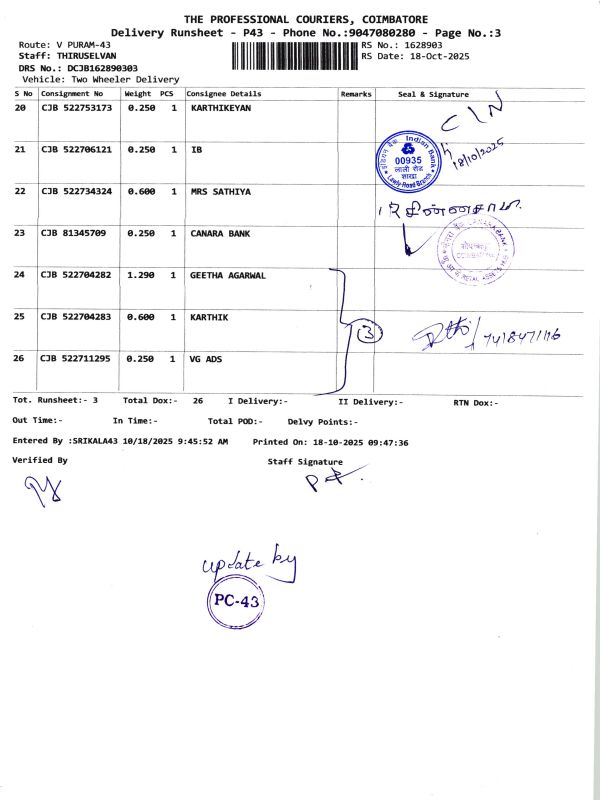 THE PROFESSIONAL COURIERS, COIMBATORE
Delivery Runsheet - P43 - Phone No.:9047080280 - Page No.:3
Route: V PURAM-43 RS No.: 1628903
Staff: THIRUSELVAN RS Date: 18-Oct-2025
DRS No.: DCJB162890303
Vehicle: Two Wheeler Delivery
S No Consignment No Weight PCS Consignee Details Remarks Seal & Signature
20 CJB 522753173 0.250 1 KARTHIKEYAN
21 CJB 522706121 0.250 1 IB
Indian Bank
00935
लाली रोड
शाखा
Lawly Road Branch
18/10/2025
22 CJB 522734324 0.600 1 MRS SATHIYA
23 CJB 81345709 0.250 1 CANARA BANK
24 CJB 522704282 1.290 1 GEETHA AGARWAL
25 CJB 522704283 0.600 1 KARTHIK
3
26 CJB 522711295 0.250 1 VG ADS
Tot. Runsheet:- 3 Total Dox:- 26 I Delivery:- II Delivery:- RTN Dox:-
Out Time:- In Time:- Total POD:- Delvy Points:-
Entered By :SRIKALA43 10/18/2025 9:45:52 AM Printed On: 18-10-2025 09:47:36
Verified By Staff Signature
update by
PC-43